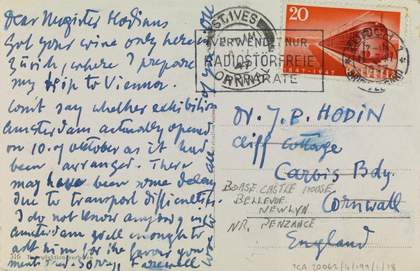 Dear Magister Hodin
Got your wire only here in
Zürich, where I prepare
my trip to Vienna.
Can't say whether exhibition
Amsterdam actually opened
on 10. of october as it had
been arranged. There
may have been some delay
due to transport difficulties.
I do not know anybody in
Amsterdam well enough to
ask him for the favour you
want me to. Sorry, farewell
ST. IVES
CORNWALL
VERWENDET NUR
RADIOSTÖRFREIE
APPARATE
20
HELVETIA
Dr. J. P. HODIN
Cliff Cottage
Carbis Bay
Cornwall
England
BOASE CASTLE HOUSE
BELLEVUE
NEWLYN
NR. PENZANCE
TGA 20062/4/199/1/18